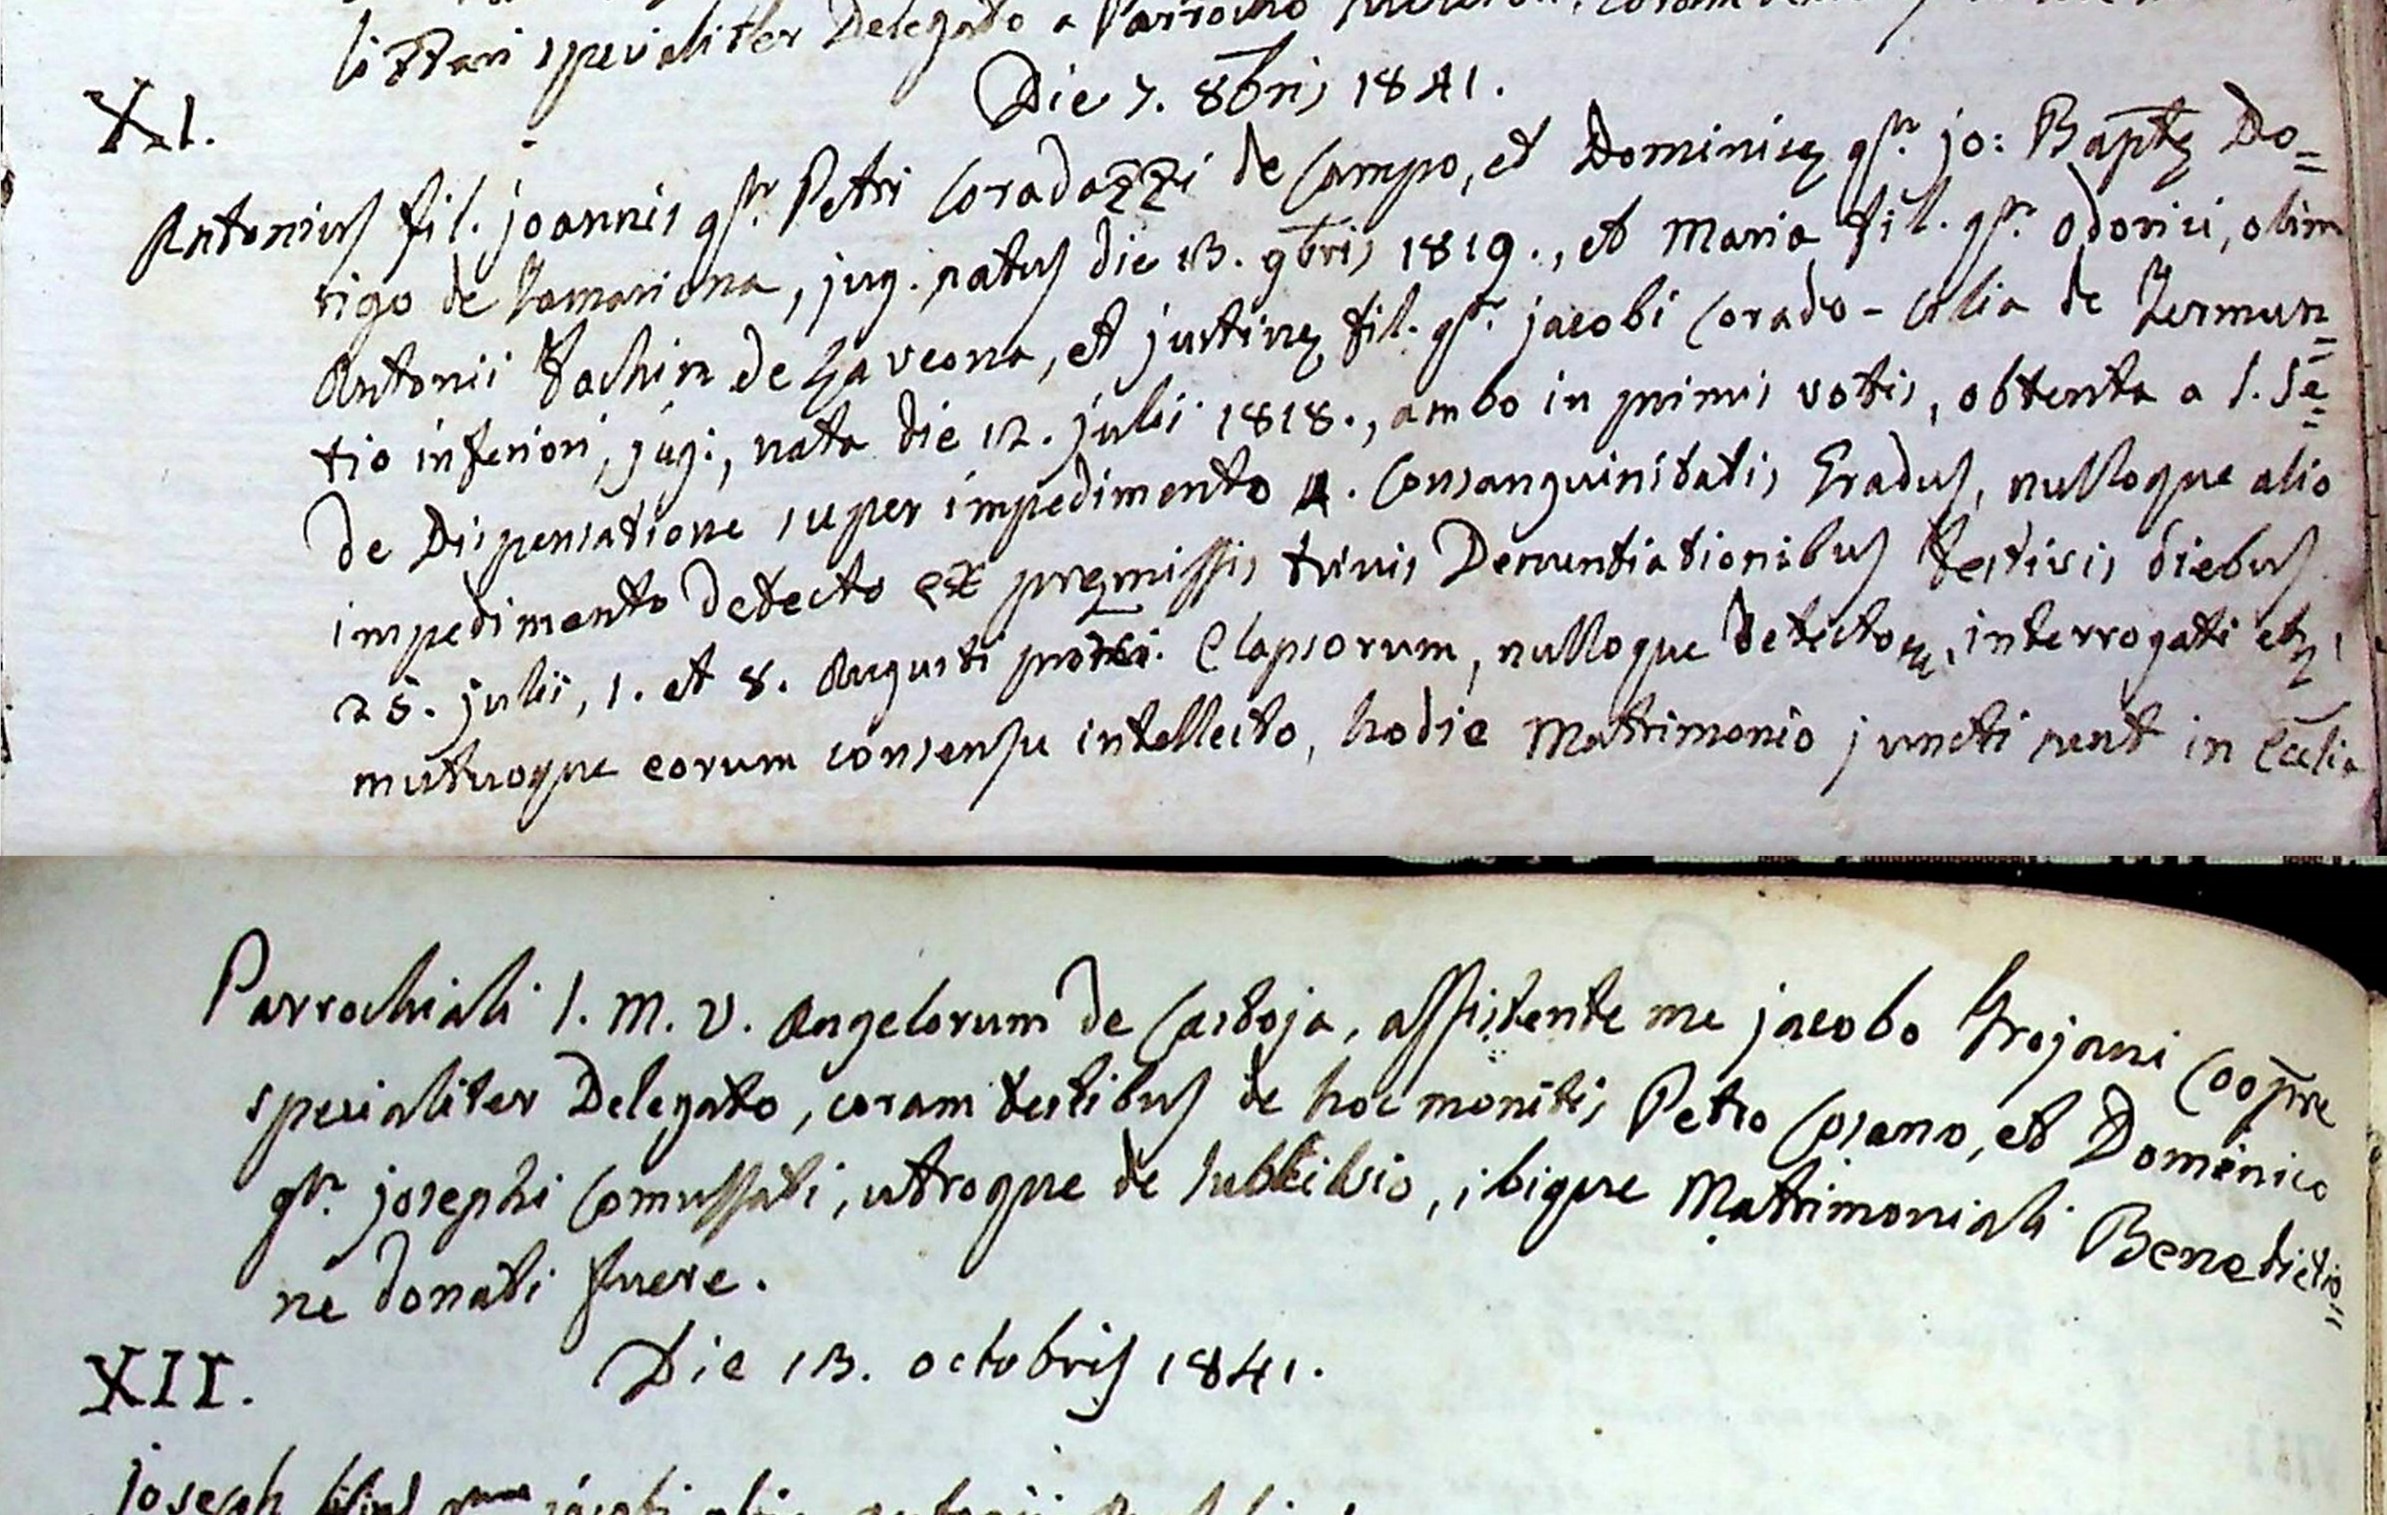 littari specialiter Delegato a Parrocho
Die 7. 8bris 1841.
XI.
Antonius fil. joannis qr. Petri Coradazzi de Campo, et Dominicę qr. jo: Baptę Do=
rigo de Lamariana, jug. natus die 13. 9bris 1819., et Maria fil. qr. Odorici, olim
Antonii Fachin de Caveona, et justinę fil. qr. jacobi Corado-Colia de Jermun=
tio inferiori, jug:, nata die 12. julii 1818., ambo in primis votis, obtenta a S. Se=
de Dispensatione super impedimento 4. Consanguinitatis Gradus, nulloque alio
impedimento detecto ex pręmissis trinis Denuntiationibus festivis diebus
25. julii, 1. et 8. Augusti elapsorum, nulloque detecto, interrogati
mutuoque eorum consensu intellecto, hodie Mattrimonio juncti sunt in Ecclia
Parrochiali S. M. V. Angelorum de Castoja, assistente me jacobo Trojani Coopre
specialiter Delegato, coram testibus de hoc monitis Petro Cosano, et Dominico
qr. josephi Comussati, utroque de Subkilvio, ibique Mattrimoniali Benedictio=
ne donati fuere.
XII.
Die 13. octobris 1841.
Joseph filius jacobi olim antonii